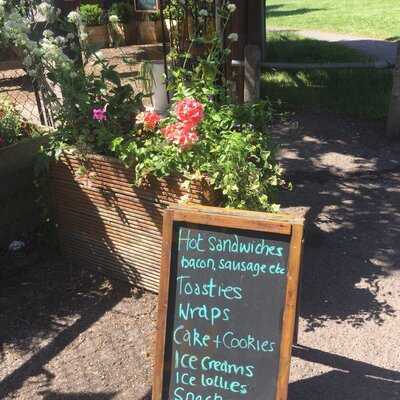 Hot Sandwiches
bacon, sausage etc
Toasties
Wraps
Cake + Cookies
Ice Creams
Ice lollies